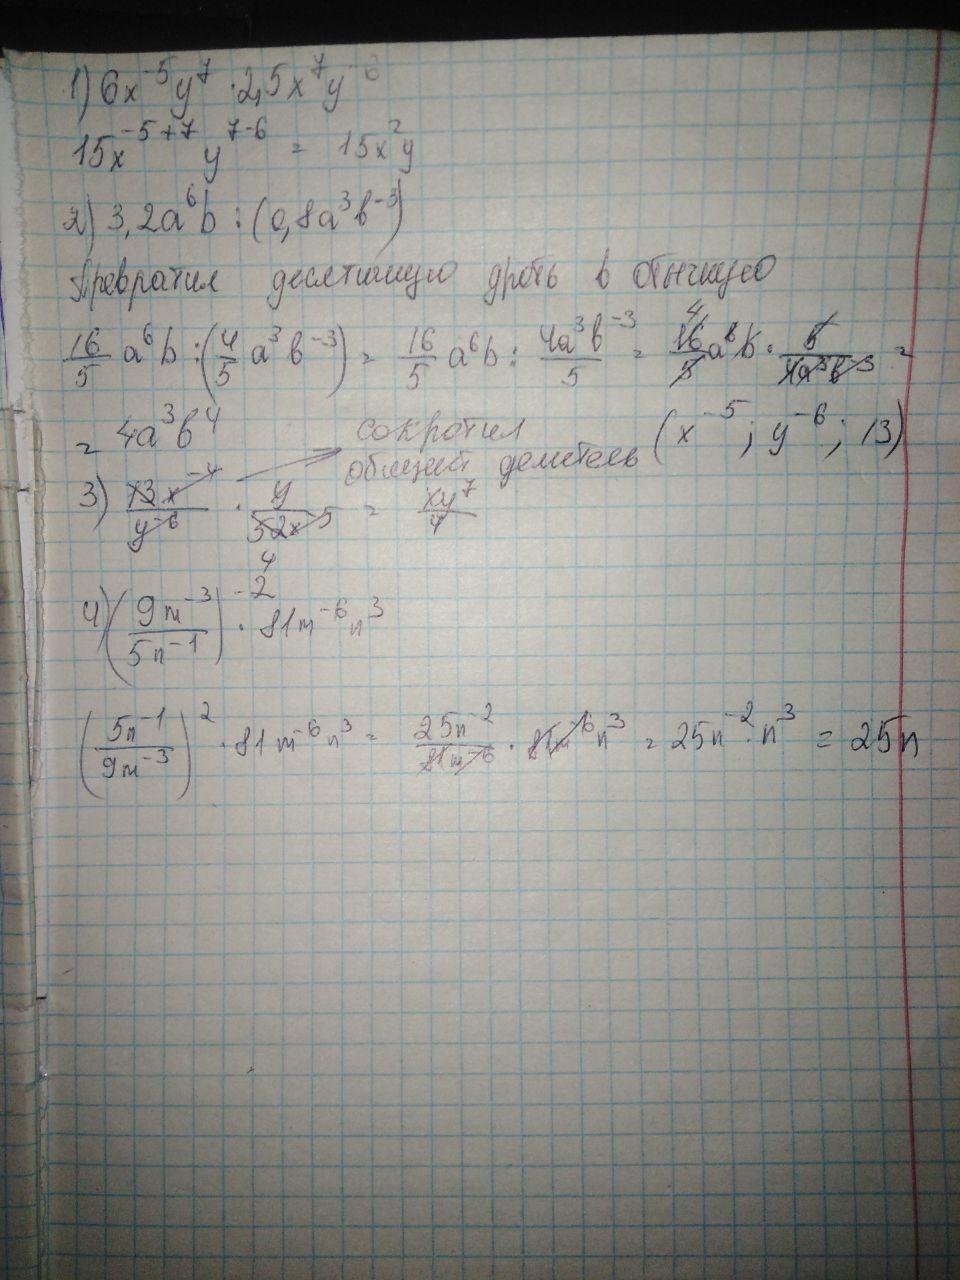 1) 6x⁻⁵y⁷ · 2,5x⁷y⁻⁶
15x⁻⁵⁺⁷ y⁷⁻⁶ = 15x²y
2) 3,2a⁶b : (0,8a³b⁻³)
Превратил десятичную дробь в обычную
16/5 a⁶b : (4/5 a³b⁻³) = 16/5 a⁶b : 4a³b⁻³/5 = 16/5 a⁶b · 5/4a³b⁻³ =
4
= 4a³b⁴
сокротил
общий делитель (x⁻⁵; y⁻⁶; 13)
3) 13x⁻⁴/y⁻⁶ · y/52x⁻⁵ = xy⁷/4
4
4) (9m⁻³/5n⁻¹)⁻² · 81m⁻⁶n³
(5n⁻¹/9m⁻³)² · 81m⁻⁶n³ = 25n⁻²/81m⁻⁶ · 81m⁻⁶n³ = 25n⁻² · n³ = 25n